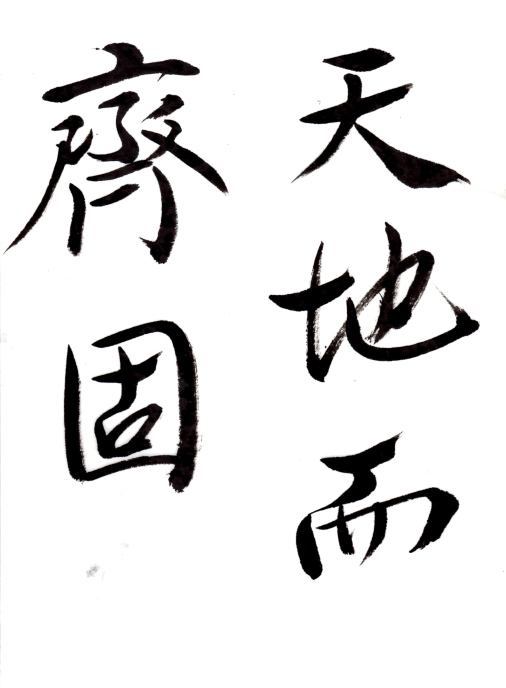 天地而
齊固